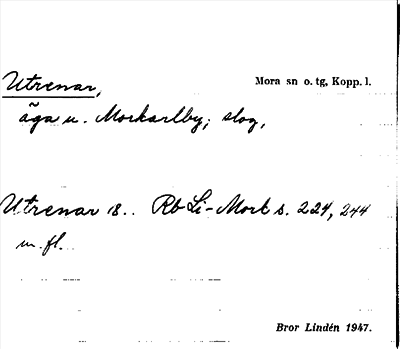 Utrenar,
Mora sn o. tg, Kopp. l.
äga u. Morkarlby; slog,
Utrenar 18.. Rb Li-Mork s. 224, 244
m. fl.
Bror Lindén 1947.